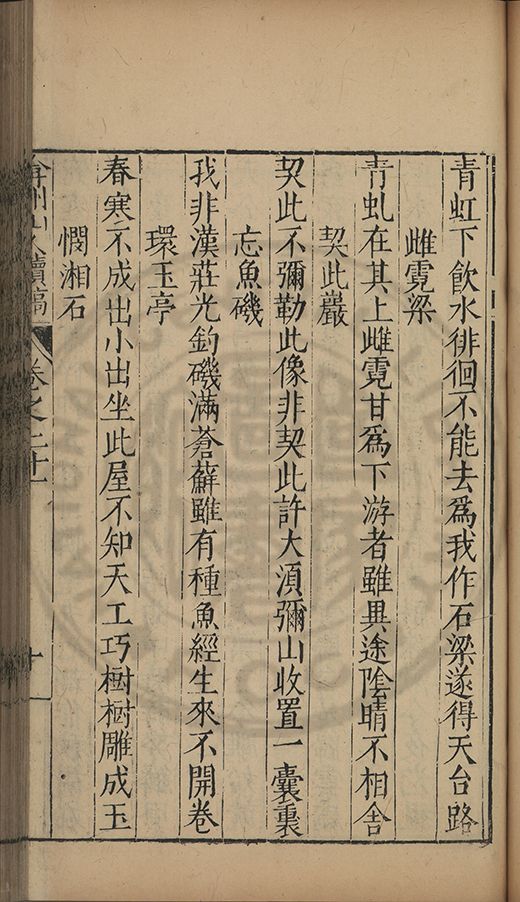 青虹下飲水徘徊不能去爲我作石梁遂得天台路
雌霓梁
青虬在其上雌霓甘爲下游者雖異途陰晴不相舍
契此巖
契此不彌勒此像非契此許大湏彌山收置一囊裏
忘魚磯
我非漢莊光釣磯滿蒼蘚雖有種魚經生來不開卷
環玉亭
春寒不成出小出坐此屋不知天工巧樹樹雕成玉
憫湘石
弇州山人續稿
卷之二十一
十